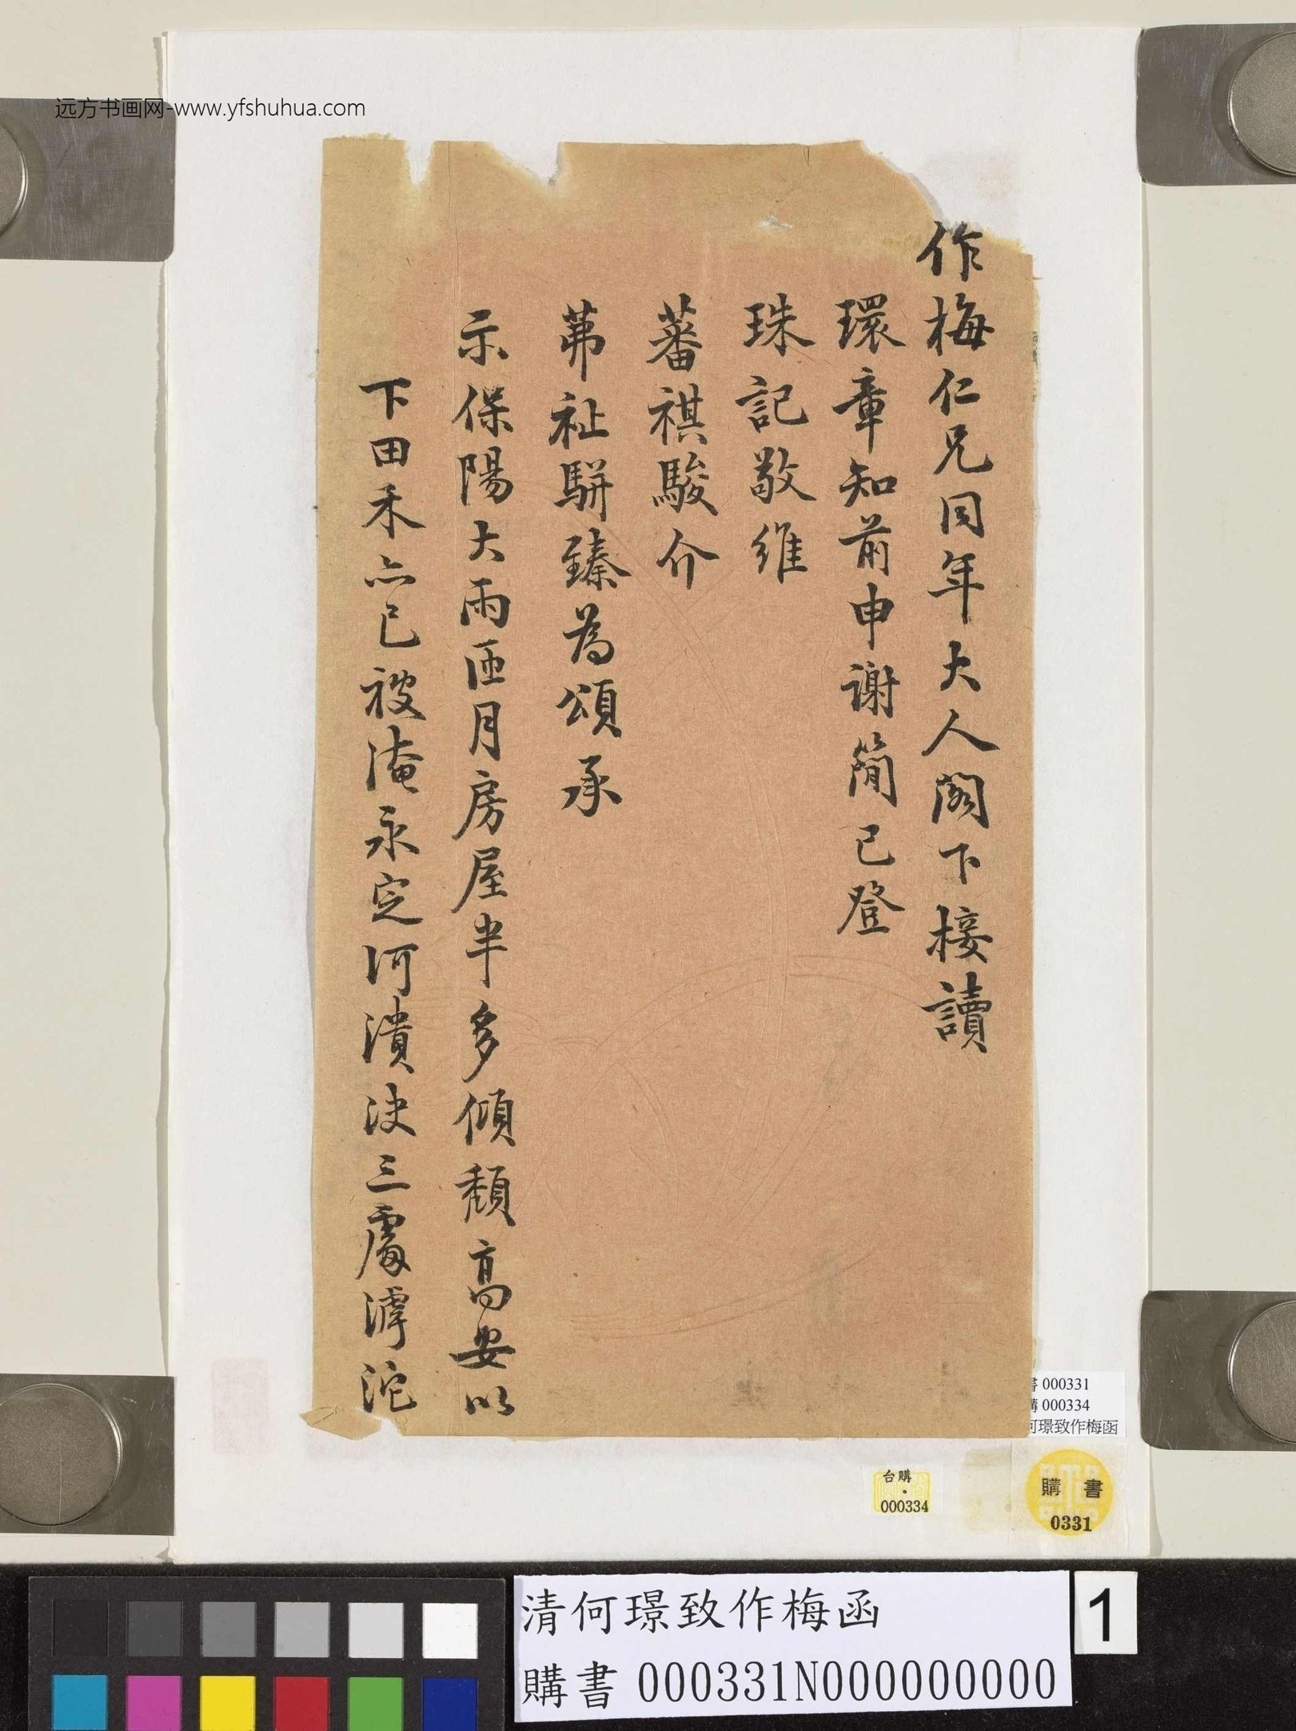 远方书画网-www.yfshuhua.com
作梅仁兄同年大人閣下接讀
環章知前申謝簡已登
珠記敬維
蕃祺駿介
茀祉駢臻為頌承
示保陽大雨匝月房屋半多傾頹高安以
下田禾亦已被淹永定河潰決三處滹沱
書 000331
購 000334
何璟致作梅函
台購
000334
購 書
0331
清何璟致作梅函
購書 000331N000000000
1